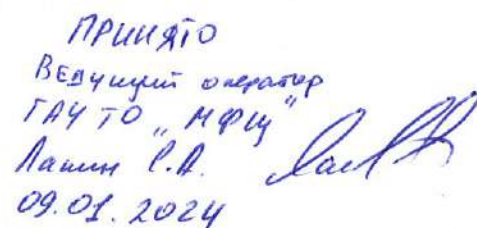 ПРИНЯТО
Ведущий оператор
ГАУ ТО „МФЦ"
Лапин С.А.
09.01.2024